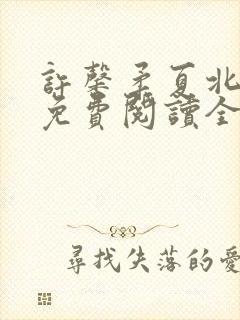 許馨矛夏北
免費閱讀全
尋找失落的愛